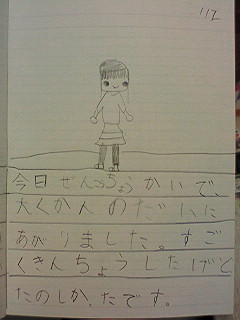 112
今日ぜんこうちょうかいで、
大くかんのだいに
あがりました。すご
くきんちょうしたけど
たのしかったです。